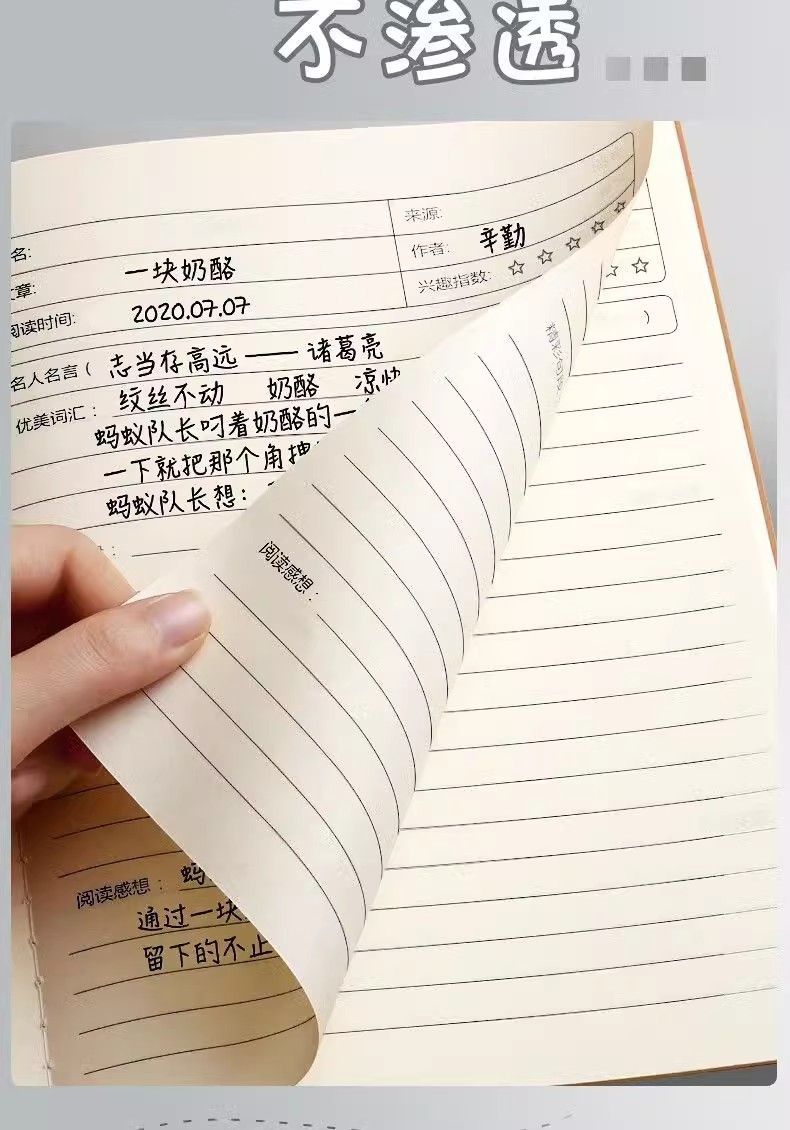 不渗透
名:
来源:
章: 一块奶酪
作者: 辛勤
阅读时间: 2020.07.07
兴趣指数:
名人名言( 志当存高远——诸葛亮
)
优美词汇: 纹丝不动 奶酪 凉快
蚂蚁队长叼着奶酪的一
一下就把那个角拽
蚂蚁队长想:
:
阅读感想:
阅读感想: 蚂
通过一块
留下的不止